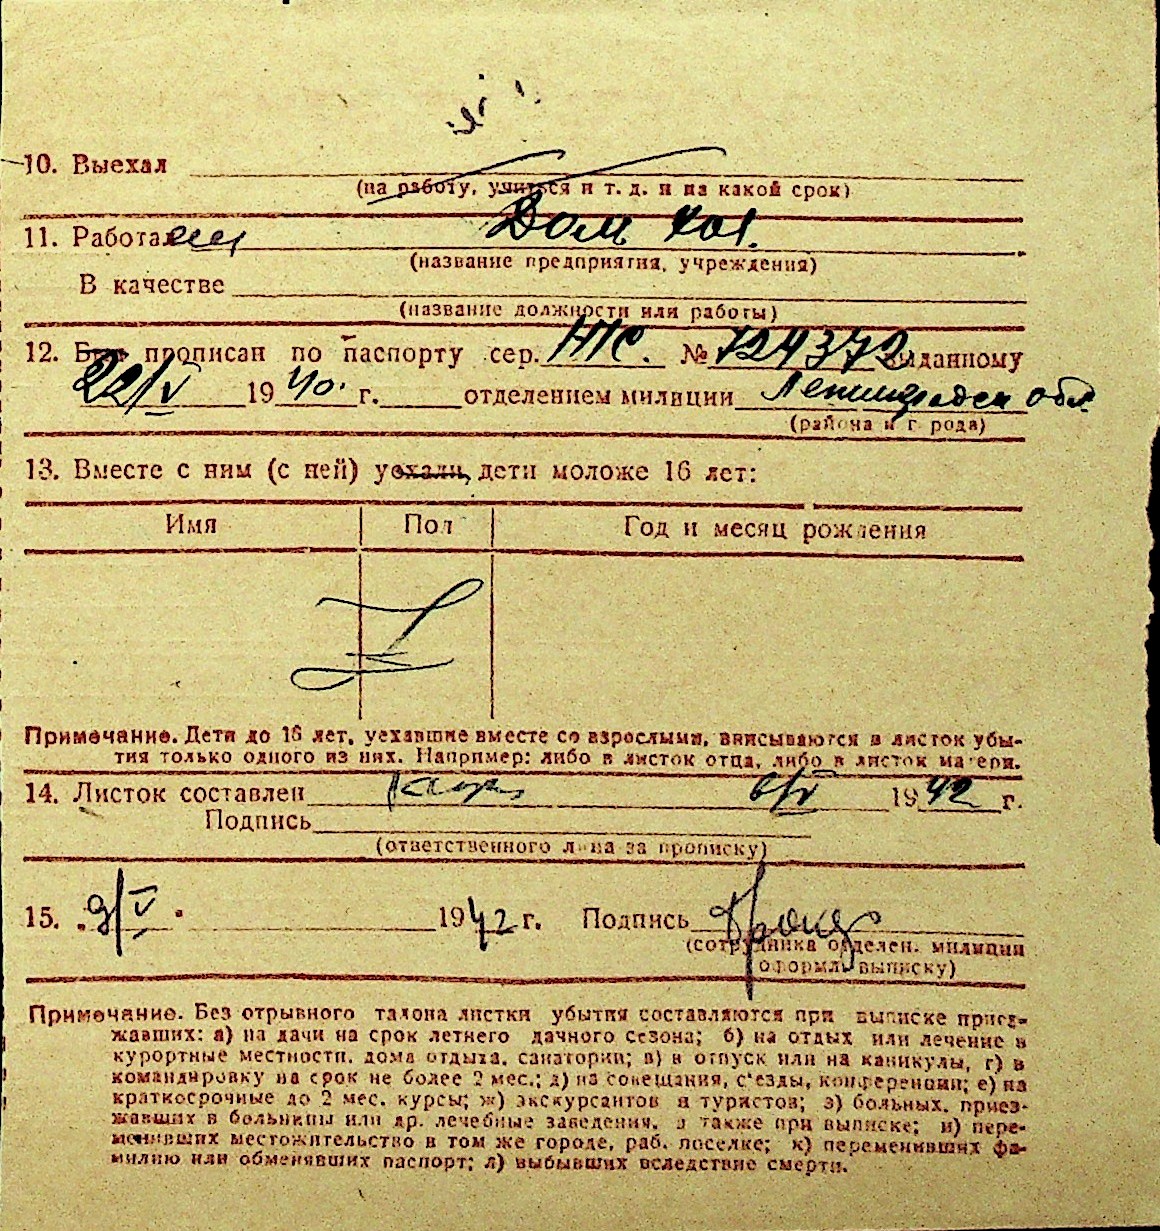 10. Выехал
(на работу, учиться и т. д. и на какой срок)
11. Работал Дом хоз.
(название предприятия, учреждения)
В качестве
(название должности или работы)
12. Был прописан по паспорту сер. НС. № 724372 выданному
22/V 1940. г. отделением милиции Ленинградск обл
(района и города)
13. Вместе с ним (с ней) уехали дети моложе 16 лет:
Имя Пол Год и месяц рождения
Примечание. Дети до 16 лет, уехавшие вместе со взрослыми, вписываются в листок убы-
тия только одного из них. Например: либо в листок отца, либо в листок матери.
14. Листок составлен 6/V 1942 г.
Подпись
(ответственного лица за прописку)
15. „9/V" 1942 г. Подпись
(сотрудника отделен. милиции
оформл. выписку)
Примечание. Без отрывного талона листки убытия составляются при выписке приез-
жавших: а) на дачи на срок летнего дачного сезона; б) на отдых или лечение в
курортные местности, дома отдыха, санатории; в) в отпуск или на каникулы, г) в
командировку на срок не более 2 мес.; д) на совещания, с'езды, конференции; е) на
краткосрочные до 2 мес. курсы; ж) экскурсантов и туристов; з) больных, приез-
жавших в больницы или др. лечебные заведения, а также при выписке; и) пере-
менивших местожительство в том же городе, раб. поселке; к) переменивших фа-
милию или обменявших паспорт; л) выбывших вследствие смерти.